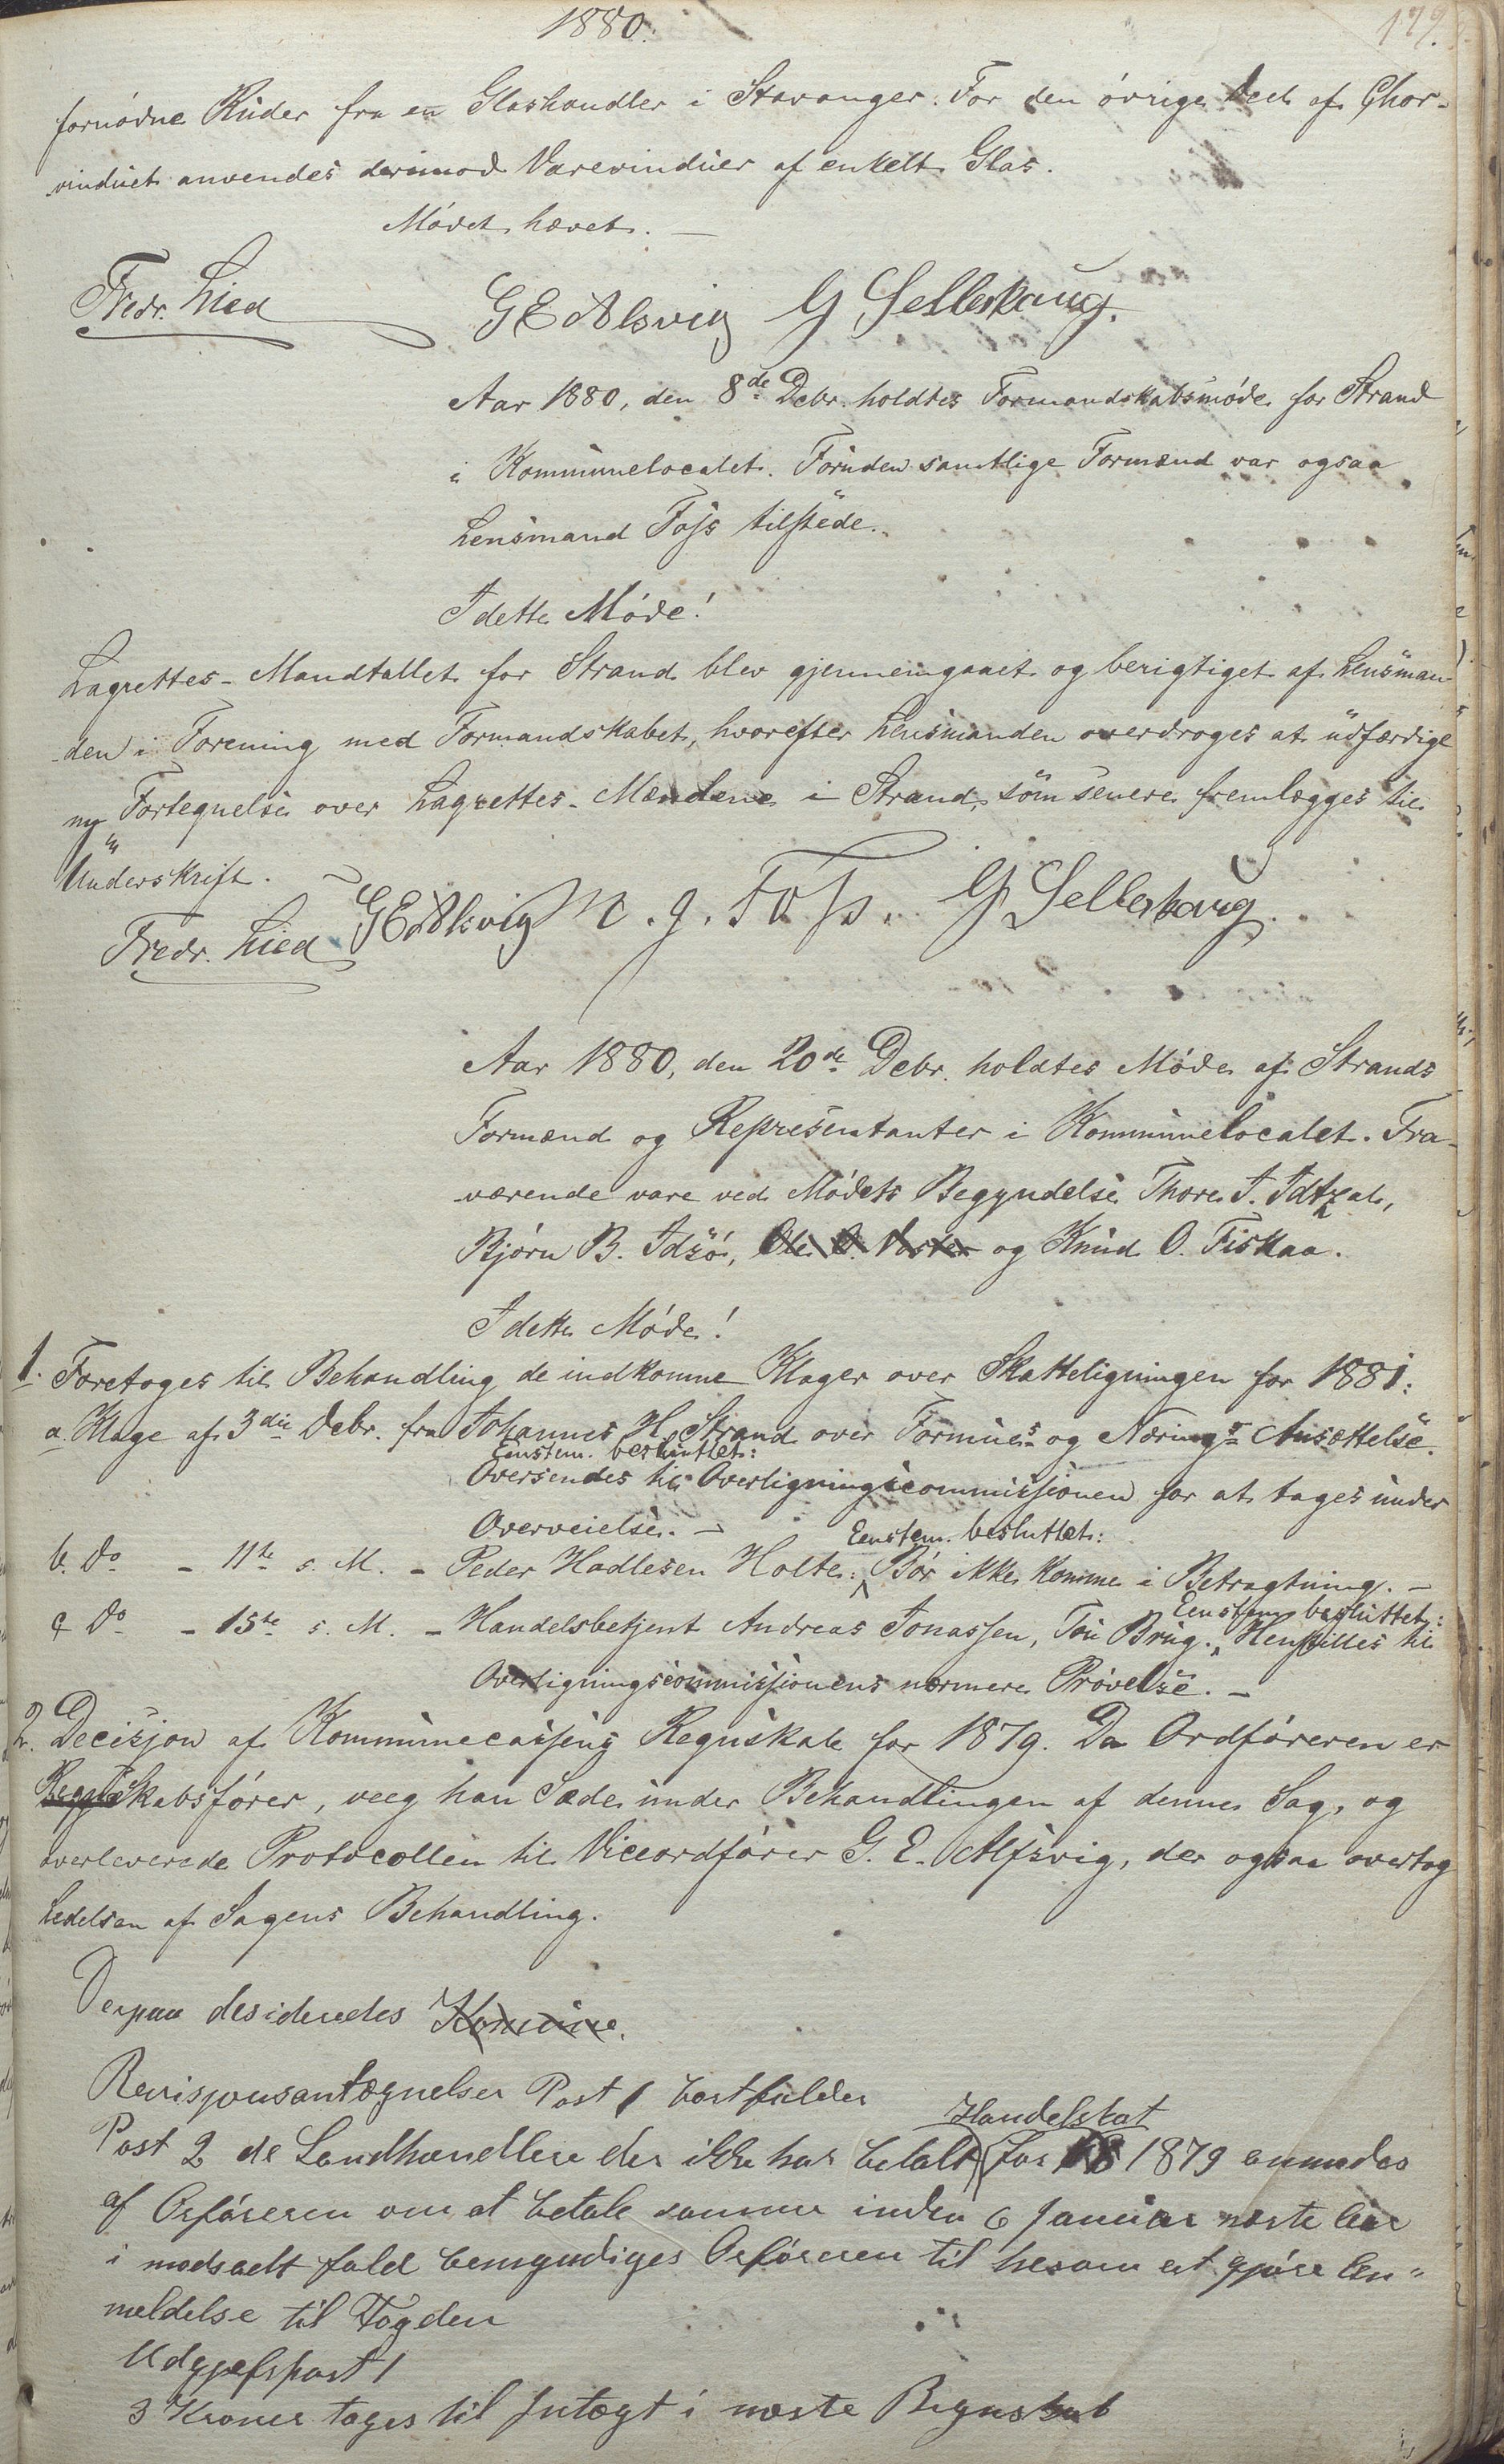 1880.
179.
fornødne Ruder fra en Glashandler i Stavanger. For den øvrige Deel af Chor-
vinduet anvendes derimod Varevinduer af enkelt Glas.
Mødet hævet. —
Fredr. Lied G E Alsvig G Selleskaug.
Aar 1880, den 8de Debr. holdtes Formandskabsmøde for Strand
i Kommunelocalet. Foruden samtlige Formænd var ogsaa
Lensmand Foss tilstede.
I dette Møde!
Lagrettes-Mandtallet for Strand blev gjennemgaaet og berigtiget af Lensman-
den i Forening med Formandskabet, hvorefter Lensmanden overdroges at udfærdige
ny Fortegnelse over Lagrettes-Mændene i Strand, som senere fremlægges til
Underskrift. —
Fredr. Lied G E Alsvig M. J. Foss. G Selleskaug.
Aar 1880, den 20de Debr. holdtes Møde af Strands
Formænd og Repræsentanter i Kommunelocalet. Fra-
værende vare ved Mødets Begyndelse Thore T. Idtzal,
Bjørn B. Idsø, Ole O. Voster og Knud O. Fiskaa.
I dette Møde!
1. Foretoges til Behandling de indkomne Klager over Skatteligningen for 1881:
a. Klage af 3die Debr. fra Johannes H. Strand over Formues- og Nærings-Ansættelse.
Eenstem. besluttet:
Oversendes til Overligningscommissionen for at tages under
Overveielse. —
Eenstem. besluttet:
b. Do - 11te s. M. - Peder Hadlesen Holte: Bør ikke komme i Betragtning. —
Eenstem. besluttet:
c Do - 15te s. M. - Handelsbetjent Andreas Jonassen, Tou Brug. Henstilles til
Overligningscommissionens nærmere Prøvelse. —
2. Decisjon af Kommunecassens Regnskab for 1879. Da Ordføreren er
Regnskabsfører, veeg han Sæde under Behandlingen af denne Sag, og
overleverede Protocollen til Viceordfører G. E. Alfsvig, der ogsaa overtog
Ledelsen af Sagens Behandling.
Derpaa desideredes Komune.
Revisjonsantegnelser Post 1 bortfalder
Handelskat
Post 2 de Landhandlere der ikke har betalt for 18 1879 anmodes
af Orføreren om at betale samme inden 6 Januar næste Aar
i modsadt fald bemyndiges Orføreren til herom at gjøre An-
meldelse til Fogden
Udgjefspost 1
3 Kroner tages til Intægt i næste Regnskab